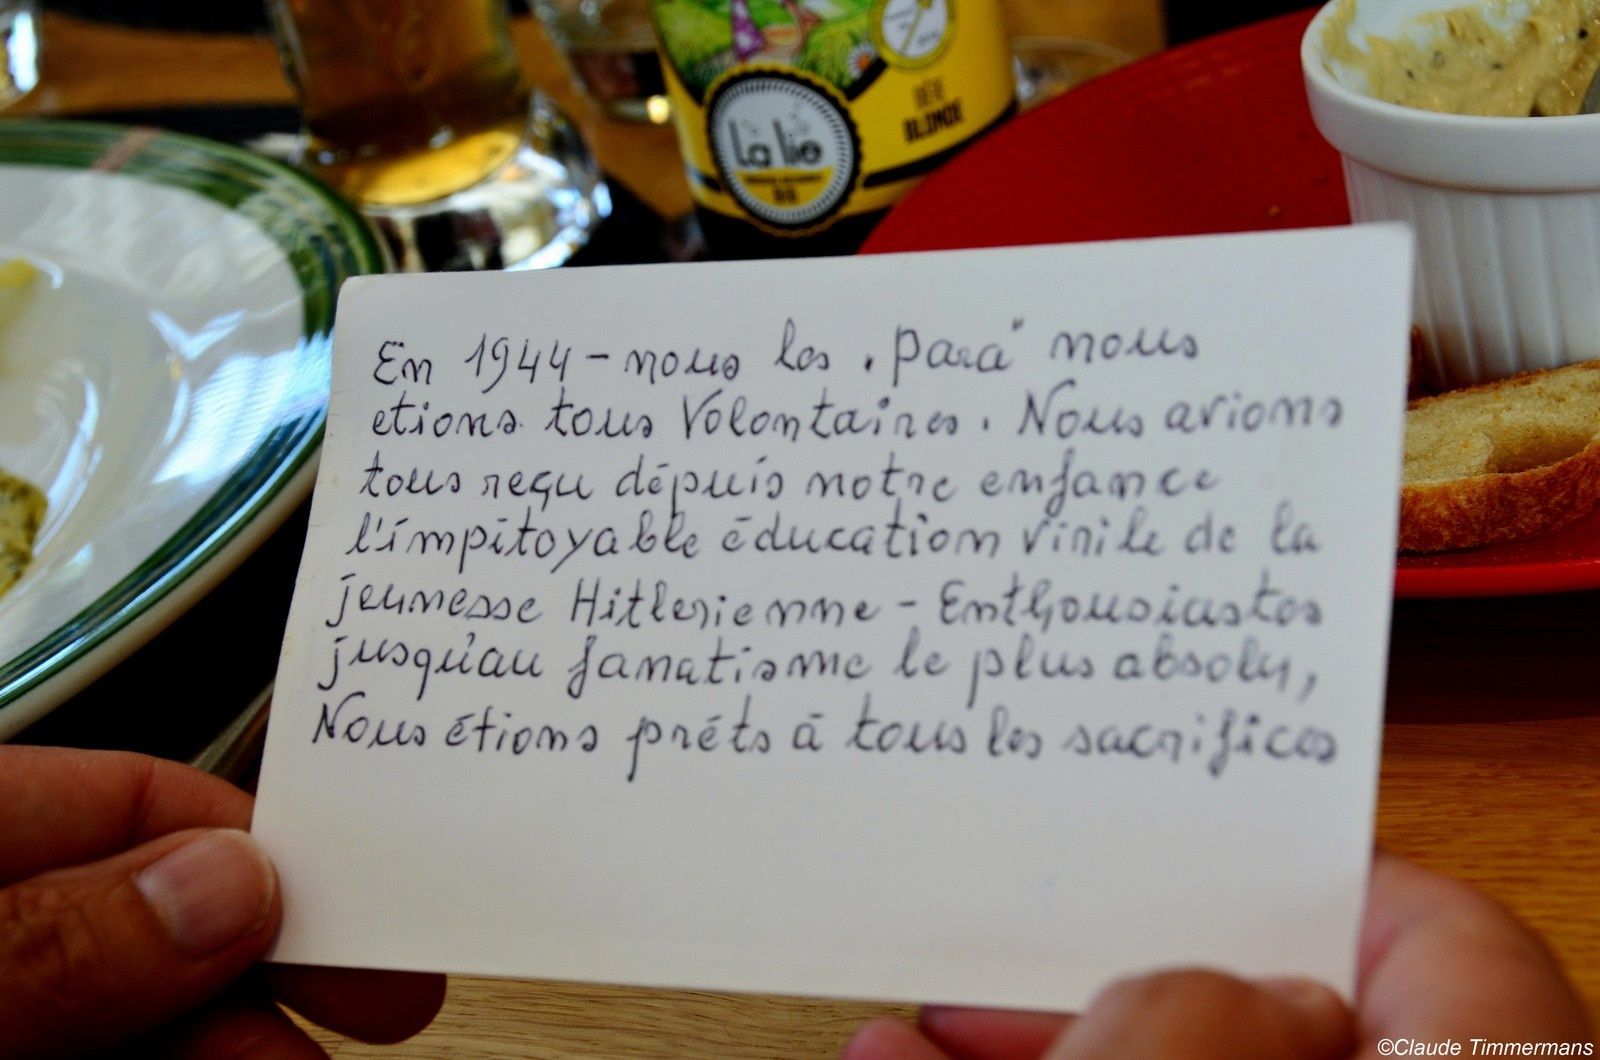 La lie
BIÈRE
BLONDE
En 1944 – nous les „Para" nous
etions tous Volontaires. Nous avions
tous reçu dépuis notre enfance
l'impitoyable éducation virile de la
jeunesse Hitlerienne – Enthousiastes
jusqu'au fanatisme le plus absolu,
Nous étions préts à tous les sacrifices
©Claude Timmermans